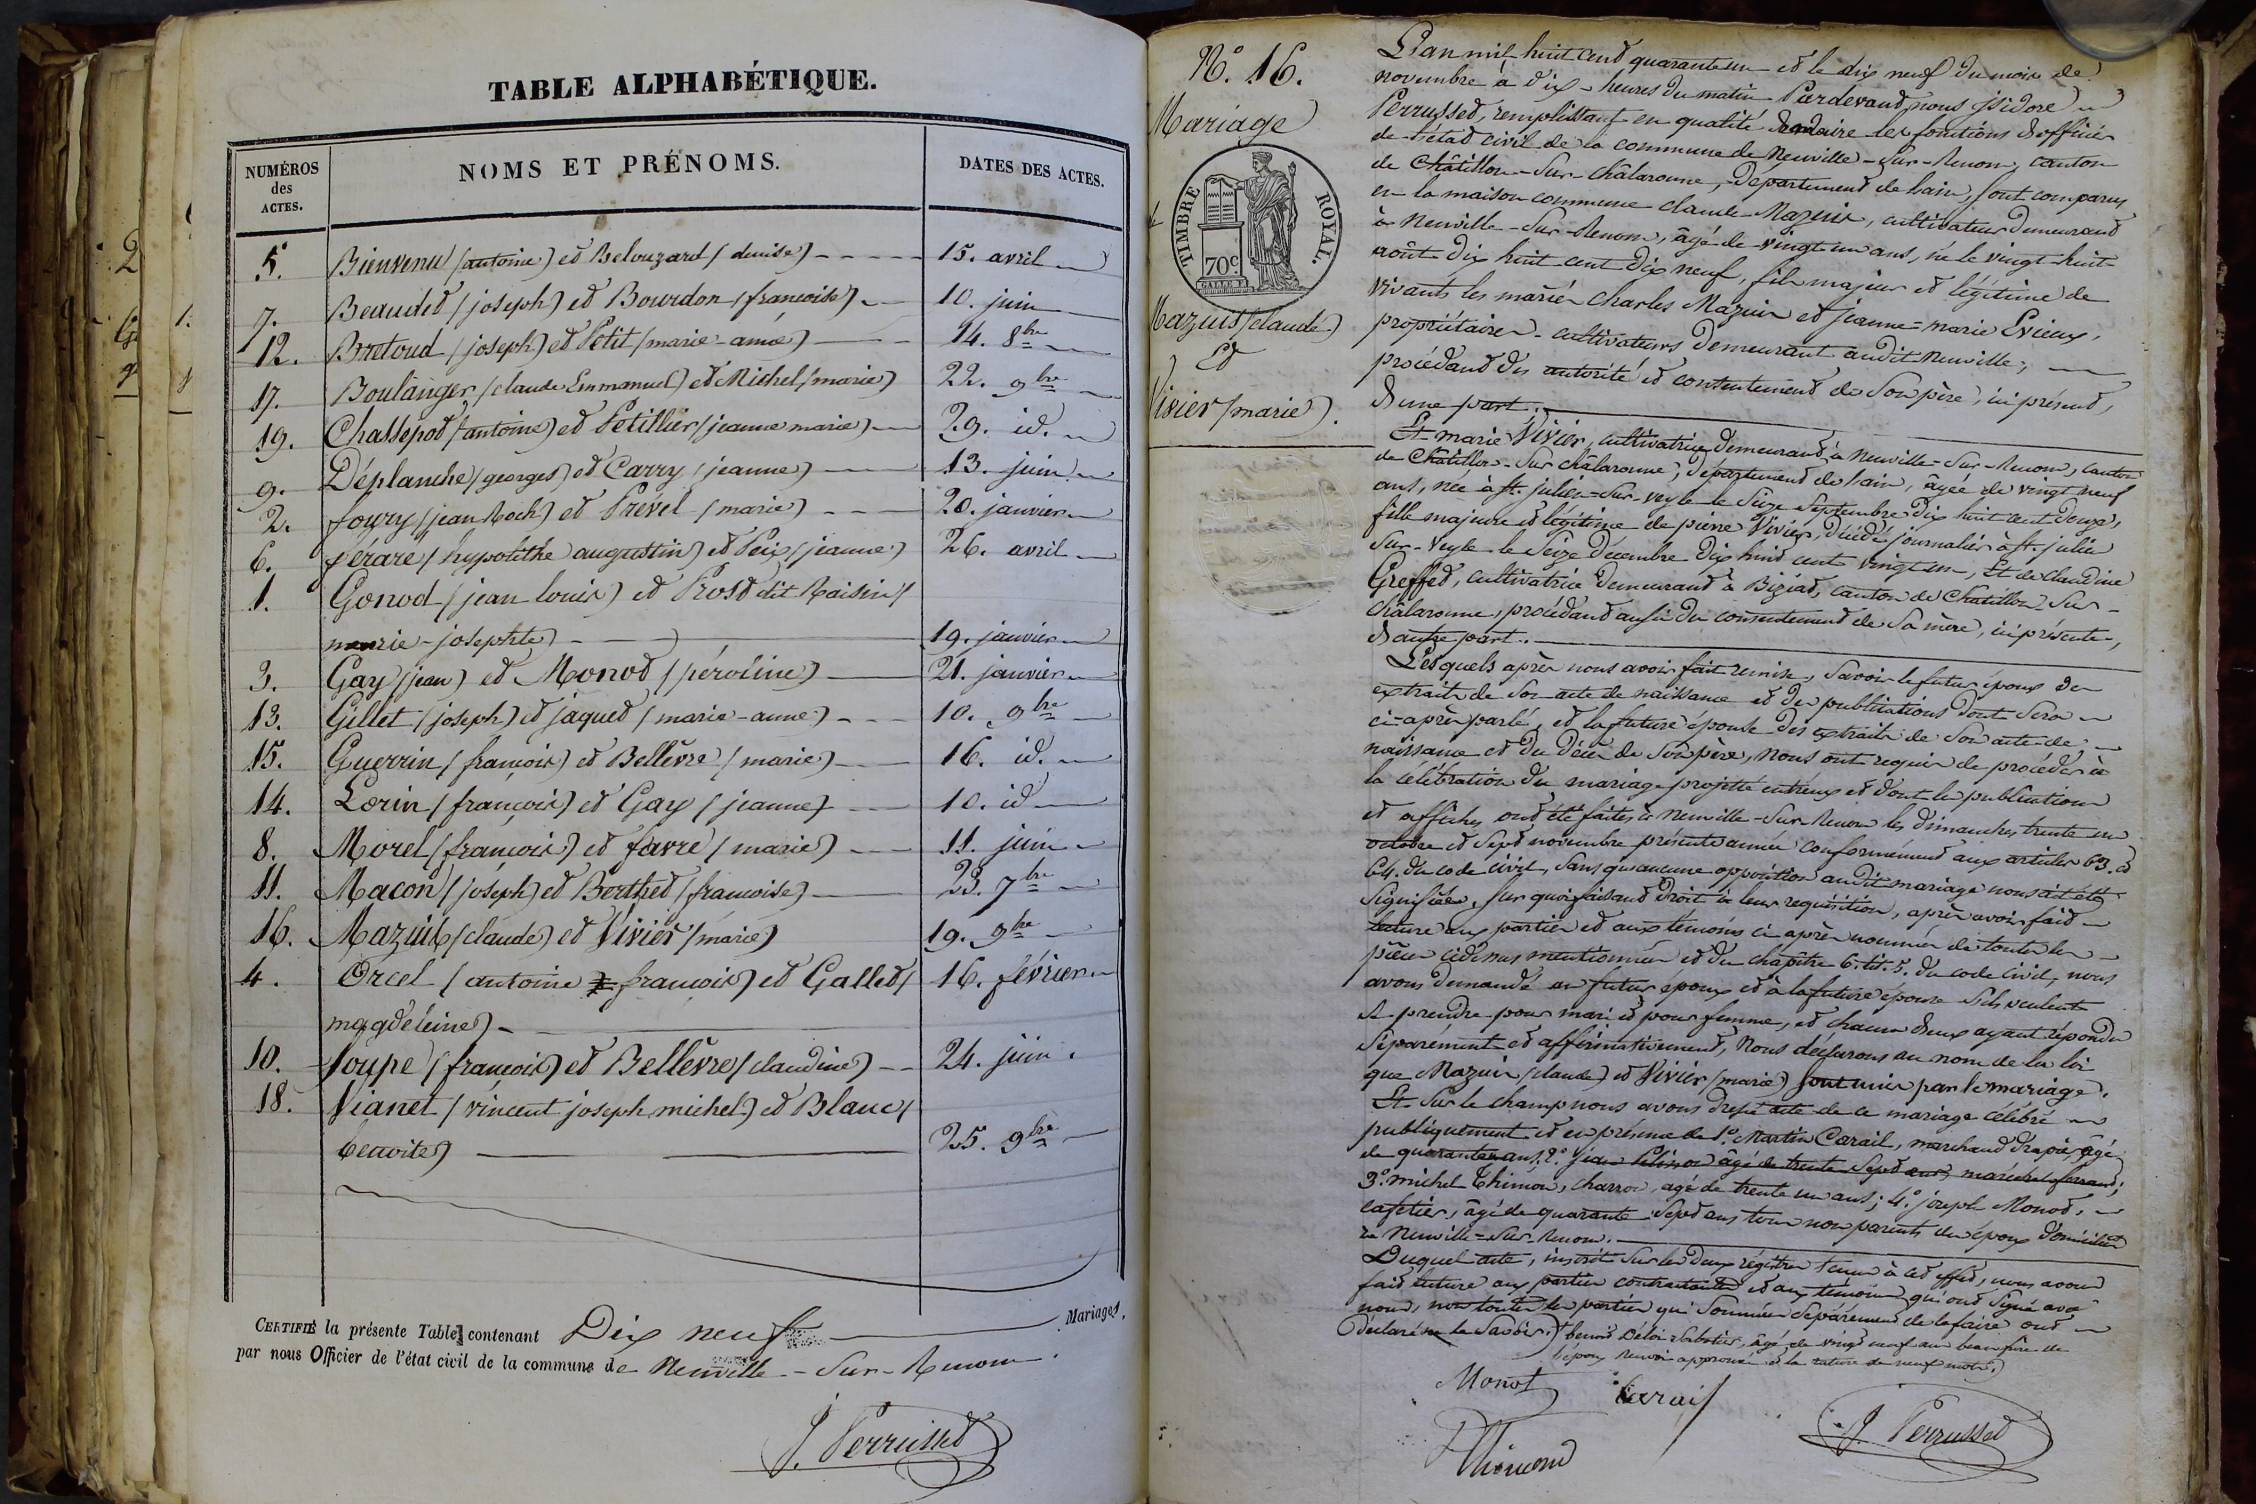 TABLE ALPHABÉTIQUE.
NUMÉROS des ACTES. NOMS ET PRÉNOMS. DATES DES ACTES.
5. Bienvenu (antoine) et Belouzard (denise) 15. avril
7. Beaudet (joseph) et Bourdon (françoise) 10. juin
12. Bretoud (joseph) et Petit (marie-anne) 14. 8bre
17. Boulanger (claude Emmanuel) et Michel (marie) 22. 9bre
19. Chassepot (antoine) et Petillier (jeanne marie) 29. id.
9. Déplanche (georges) et Carry (jeanne) 13. juin
2. foury (jean Roch) et Prével (marie) 20. janvier
6. férare (hypolithe augustin) et Peix (jeanne) 26. avril
1. Gonod (jean louis) et Prost dit Raisin (
marie-josephte) 19. janvier
3. Gay (jean) et Monod (péroline) 21. janvier
13. Gillet (joseph) et jaques (marie-anne) 10. 9bre
15. Guerrin (françois) et Bellêvre (marie) 16. id.
14. Lorin (françois) et Gay (jeanne) 10. id
8. Morel (françois) et favre (marie) 11. juin
11. Macon (joseph) et Berthet (françoise) 23. 7bre
16. Mazuis (claude) et Vivier (marie) 19. 9bre
4. Orcel (antoine françois) et Gallet (16. février
magdeleine)
10. Soupe (françois) et Bellêvre (claudine) 24. juin.
18. Vianet (vincent joseph michel) et Blanc (
benoite) 25. 9bre
CERTIFIÉ la présente Table contenant Dix neuf Mariages,
par nous Officier de l'état civil de la commune de Neuville-Sur-Renom.
J. Perrusset
No. 16.
Mariage
TIMBRE ROYAL.
70c
Mazuis (claude)
Et
Vivier (marie).
L'an mil huit cent quarante un et le dix neuf du mois de
novembre à dix heures du matin Pardevant nous isidore
Perrusset, remplissant en qualité de maire les fonctions d'officier
de l'état civil de la commune de Neuville-Sur-Renom, canton
de Châtillon-Sur-châlaronne, département de l'ain, sont comparus
en la maison commune claude Mazuis, cultivateur demeurant
à Neuville-Sur-Renom, âgé de vingt un ans, né le vingt-huit
août dix huit cent dix neuf, fils majeur et légitime de
vivants les mariés Charles Mazuis et jeanne-marie Evieux,
propriétaires-cultivateurs demeurant audit neuville;
procédant des autorité et consentement de son père, ici présent,
d'une part.
Et marie Vivier, cultivatrice demeurant à Neuville-Sur-Renom, canton
de Châtillon-Sur châlaronne, département de l'ain, âgée de vingt neuf
ans, née à St. julien-Sur-veyle le seize Septembre dix huit cent douze,
fille majeure et légitime de pierre Vivier, décédé journalier à St. julien
Sur-Veyle le Seize décembre dix huit cent vingt un, Et de claudine
Greffet, cultivatrice demeurant à Biziat, canton de Chatillon Sur-
Châlaronne, procédant aussi du consentement de Sa mère, ici présente,
d'autre part.
Lesquels après nous avoir fait remise, Savoir le futur époux des
extraits de Son acte de naissance et des publications dont sera
ci-après parlé, et la future épouse des extraits de Son acte de
naissance et du décès de Son père, nous ont requis de procéder à
la célébration du mariage projetté entr'eux et dont les publications
et affiches ont été faites à Neuville-Sur-Renom les dimanches trente un
octobre et Sept novembre présente année conformément aux articles 63. et
64. du code civil, Sans qu'aucune opposition audit mariage nous ait été
Signifiée. Sur quoi faisant droit à leur requisition, après avoir fait
lecture aux parties et aux témoins ci après nommés de toutes les
pièces cidessus mentionnées et du chapitre 6. tit. 5. du code civil, nous
avons demandé au futur époux et à la future épouse s'ils veulent
se prendre pour mari et pour femme, et chacun d'eux ayant répondu
Séparément et affirmativement, Nous déclarons au nom de la loi
que Mazuis (claude) et Vivier (marie) sont unis par le mariage.
Et Sur le champ nous avons dressé acte de ce mariage célébré
publiquement et en présence de 1o. Martin Carail, marchand drapier, âgé
de quarante ans, 2o. âgé de trente Sept ans, maréchal ferrand;
3o. michel Thimon, charron, âgé de trente un ans; 4o. joseph Monod,
cafetier, âgé de quarante Sept ans tous non parents des époux domiciliés
à Neuville-Sur-Renom.
Duquel acte, inscrit Sur les deux régistres tenus à cet effet, nous avons
fait lecture aux parties contractantes et aux témoins qui ont Signé avec
nous, non toutes les parties qui Sommées Séparément de le faire ont
déclaré ne le Savoir. benoit Sabotier, âgé de vingt neuf ans beau frère de
l'époux Renvoi approuvé et la rature de neuf mots.
Monot
Carail
Thimond
J. Perrusset